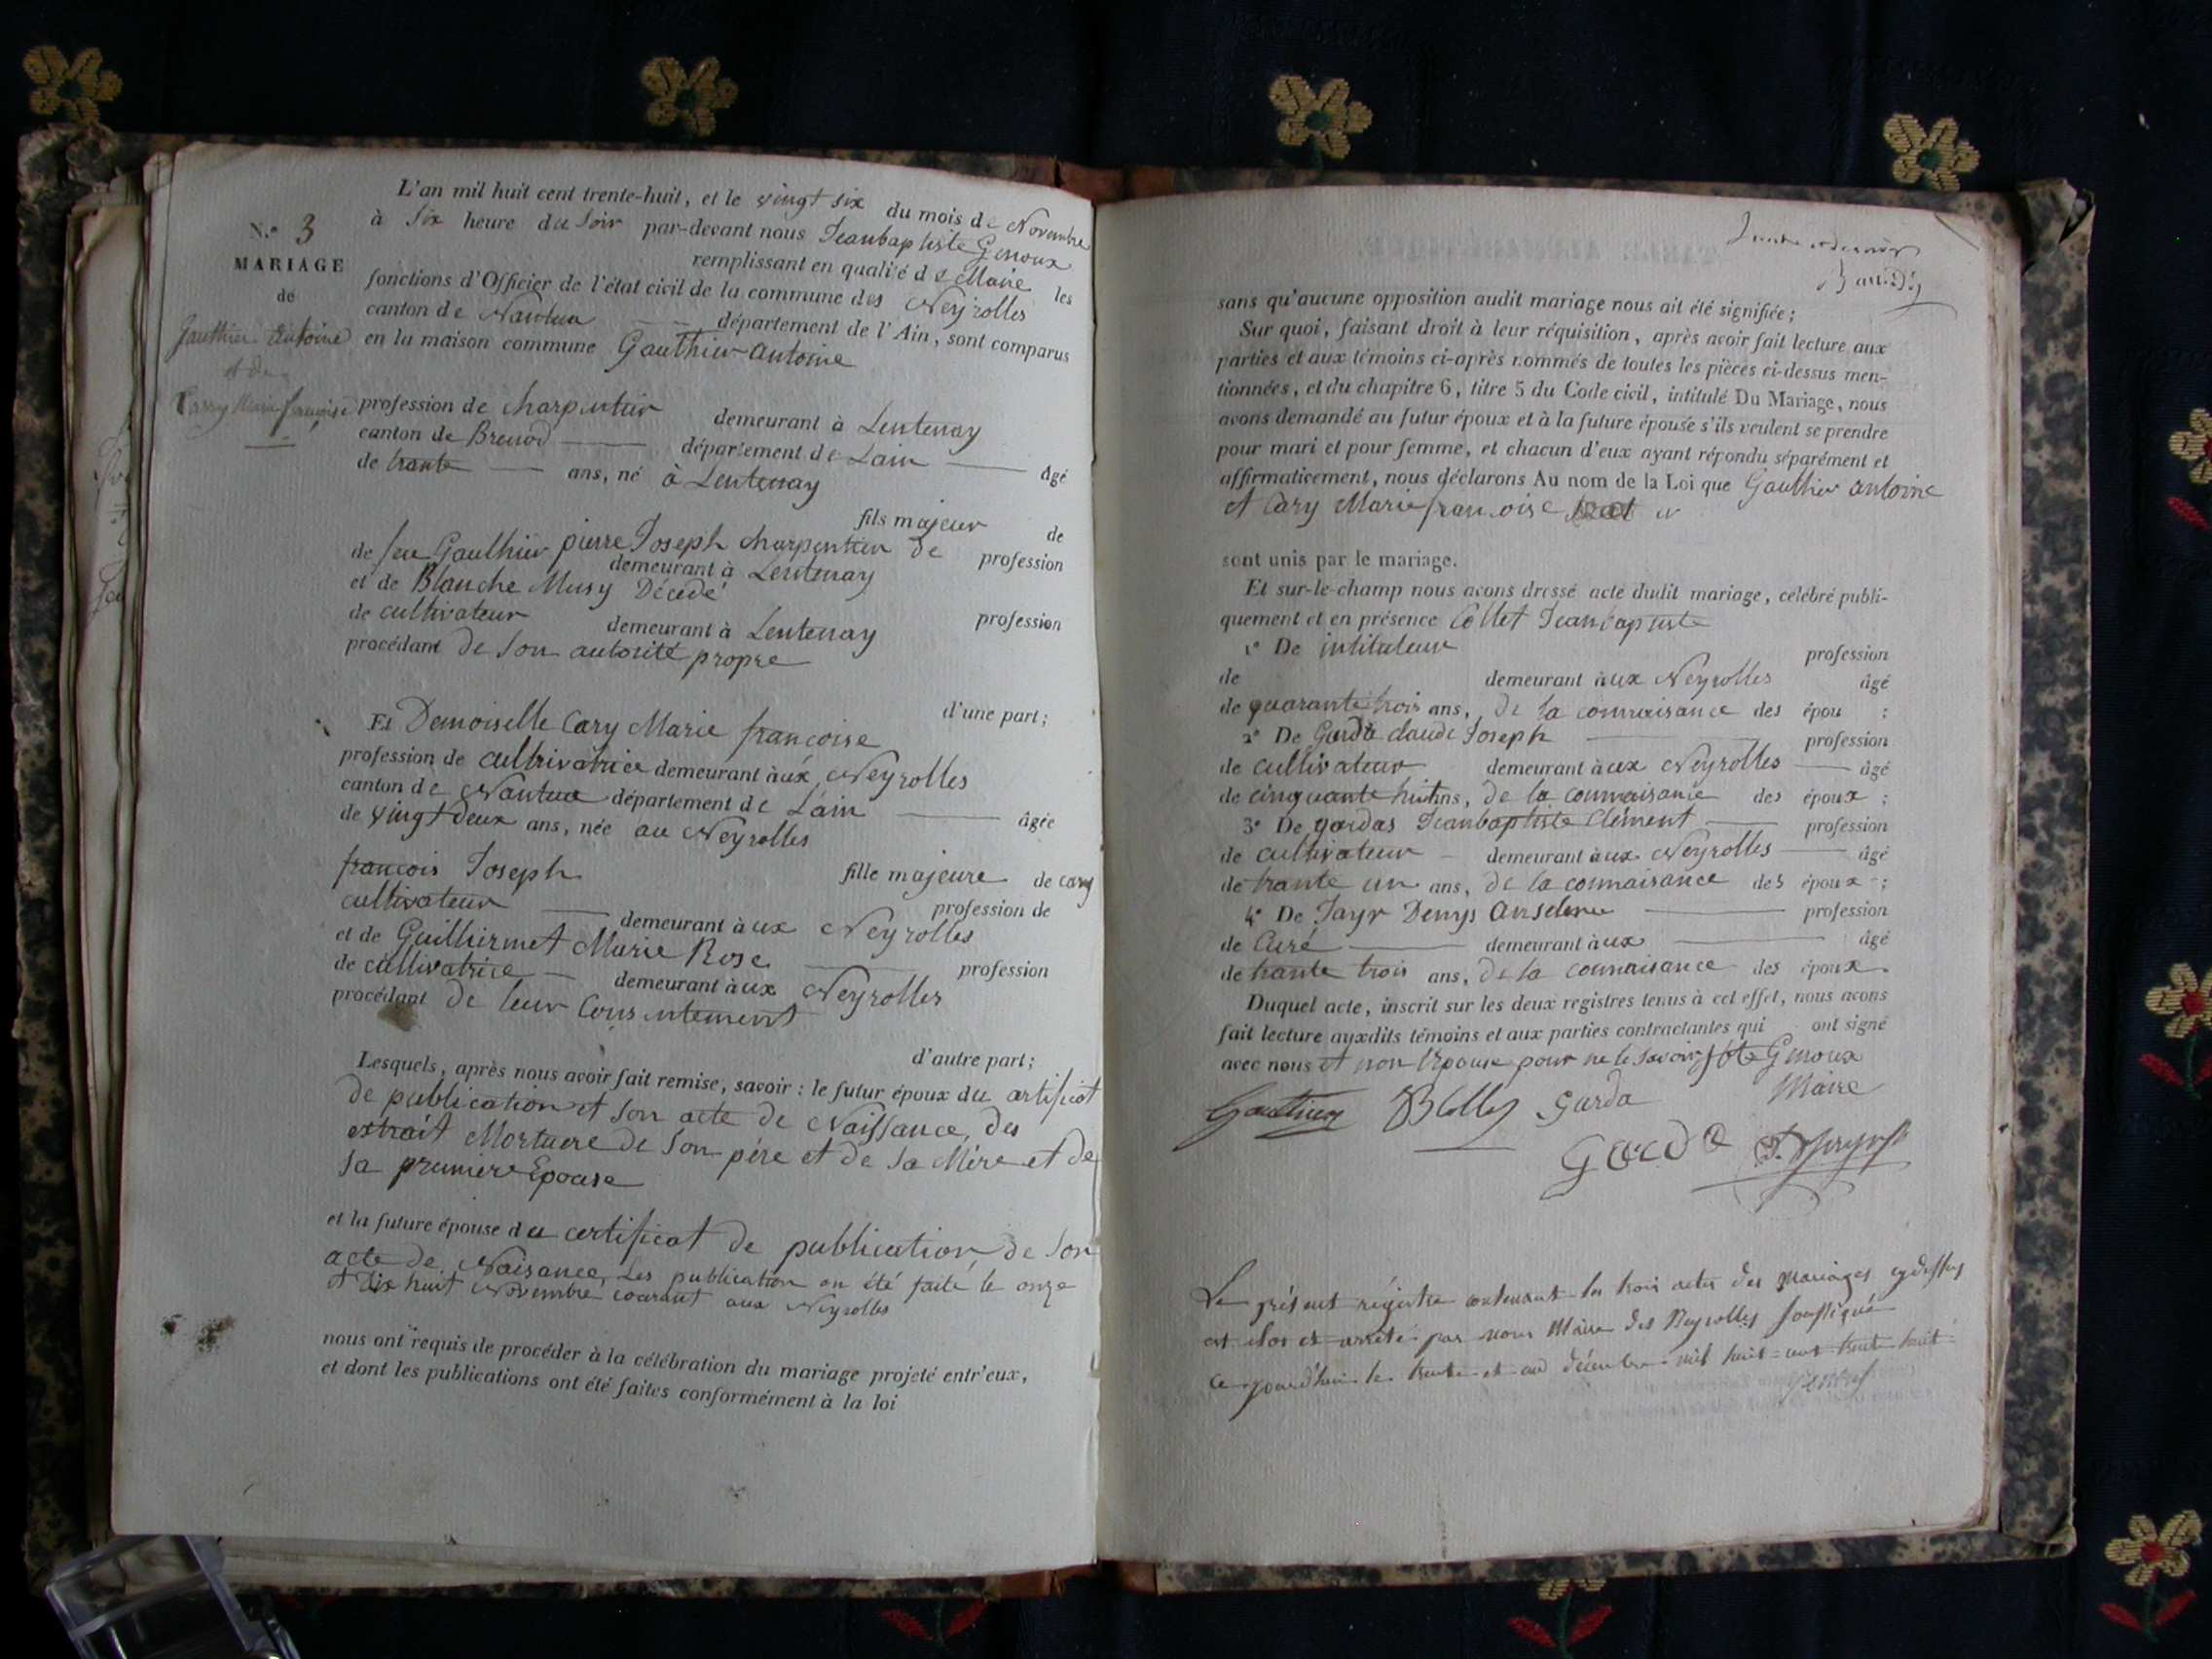 N.º 3
MARIAGE
de
Gauthier Antoine
et de
Carry Marie françoise
L'an mil huit cent trente-huit, et le vingt six du mois de Novembre
à Six heure du Soir par-devant nous Jeanbaptiste Genoux
remplissant en qualité de Maire les
fonctions d'Officier de l'état civil de la commune des Neyrolles
canton de Nantua département de l'Ain, sont comparus
en la maison commune Gauthier Antoine
profession de charpentier demeurant à Lentenay
canton de Brenod département de Lain âgé
de trante ans, né à Lentenay
fils majeur de
de feu Gauthier pierre Joseph charpentier de profession
demeurant à Lentenay
et de Blanche Musy Décédé
de cultivateur demeurant à Lentenay profession
procédant de son autorité propre
d'une part;
Et Demoiselle Cary Marie francoise
profession de cultivatrice demeurant à aux Neyrolles
canton de Nantua département de Lain âgée
de vingt deux ans, née au Neyrolles
fille majeure de cary
francois Joseph profession de
cultivateur demeurant à ux Neyrolles
et de Guillermet Marie Rose profession
de cultivatrice demeurant à ux Neyrolles
procédant de leur Consentement
d'autre part;
Lesquels, après nous avoir fait remise, savoir : le futur époux du certificat
de publication et son acte de Naissance, des
extrait Mortuere de Son père et de Sa Mère et de
Sa premiere Epouse
et la future épouse du certificat de publication de Son
acte de Naisance, Les publication on été faite le onze
et dix huit Novembre courant aux Neyrolles
nous ont requis de procéder à la célébration du mariage projeté entr'eux,
et dont les publications ont été faites conformément à la loi
sans qu'aucune opposition audit mariage nous ait été signifiée;
Sur quoi, faisant droit à leur réquisition, après avoir fait lecture aux
parties et aux témoins ci-après nommés de toutes les pièces ci-dessus men-
tionnées, et du chapitre 6, titre 5 du Code civil, intitulé Du Mariage, nous
avons demandé au futur époux et à la future épouse s'ils veulent se prendre
pour mari et pour femme, et chacun d'eux ayant répondu séparément et
affirmativement, nous déclarons Au nom de la Loi que Gauthier antoine
et Cary Marie francoise
sont unis par le mariage.
Et sur-le-champ nous avons dressé acte dudit mariage, célébré publi-
quement et en présence Collet Jeanbaptiste
1º De intituteur profession
de demeurant à ux Neyrolles âgé
de quarante trois ans, de la connaisance des épou ;
2º De Garda claude Joseph profession
de cultivateur demeurant à ux Neyrolles âgé
de cinquante huit ans, de la connaisance des époux ;
3º De gardas Jeanbaptiste Clement profession
de cultivateur demeurant à ux Neyrolles âgé
de trante un ans, de la connaisance des époux ;
4º De Jayr Denys Anselme profession
de Curé demeurant à ux âgé
de trante trois ans, de la connaisance des époux.
Duquel acte, inscrit sur les deux registres tenus à cet effet, nous avons
fait lecture auxdits témoins et aux parties contractantes qui ont signé
avec nous et non l'épouse pour ne le savoir Genoux
Maire
Gauthier Garda
Garda
Le présent régistre contenant les trois actes des Mariages cydessus
est clos et arrêté par nous Maire des Neyrolles soussigné
ce jourd'hui le trente et un décembre mil huit cent trente huit